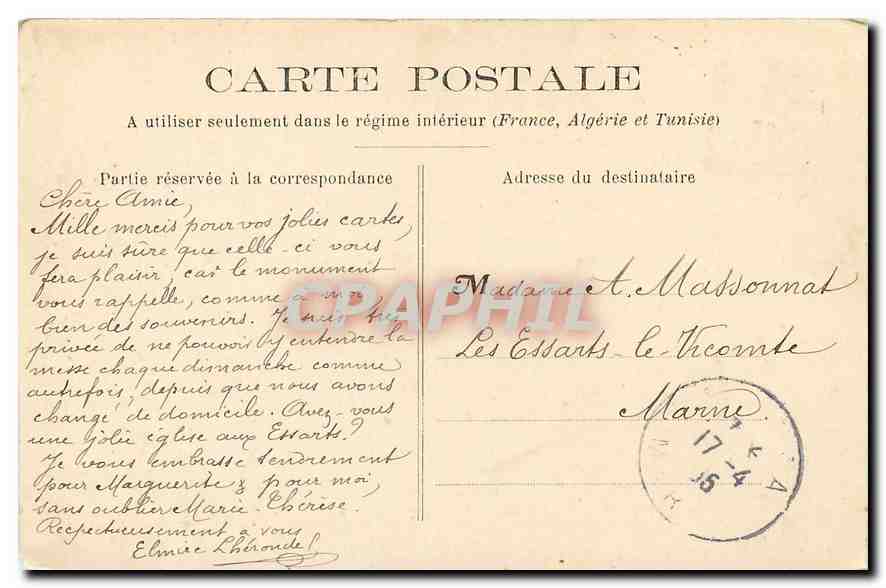 CARTE POSTALE
A utiliser seulement dans le régime intérieur (France, Algérie et Tunisie)
Partie réservée à la correspondance
Chère Amie,
Mille mercis pour vos jolies cartes,
je suis sûre que celle-ci vous
fera plaisir, car le monument
vous rappelle, comme à moi
bien des souvenirs. Je suis très
privée de ne pouvoir y entendre la
messe chaque dimanche comme
autrefois, depuis que nous avons
changé de domicile. Avez-vous
une jolie église aux Essarts?
Je vous embrasse tendrement
pour Marguerite & pour moi,
sans oublier Marie-Thérèse.
Respectueusement à vous
Elmire Lhéronde
Adresse du destinataire
Madame A. Massonnat
Les Essarts-le-Vicomte
Marne.
17 -4
CPAPHIL